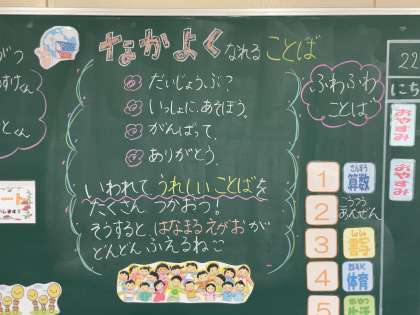 なかよくなれることば
だいじょうぶ?
いっしょに、あそぼう。
がんばって。
ありがとう。
いわれてうれしいことばを
たくさんつかおう!
そうすると、はなまるえがおが
どんどんふえるね
ふわふわ
ことば
22
にち
おやすみ
おやすみ
1
さんすう
算数
2
こうつう
あんぜん
3
書写
4
たいいく
体育
5